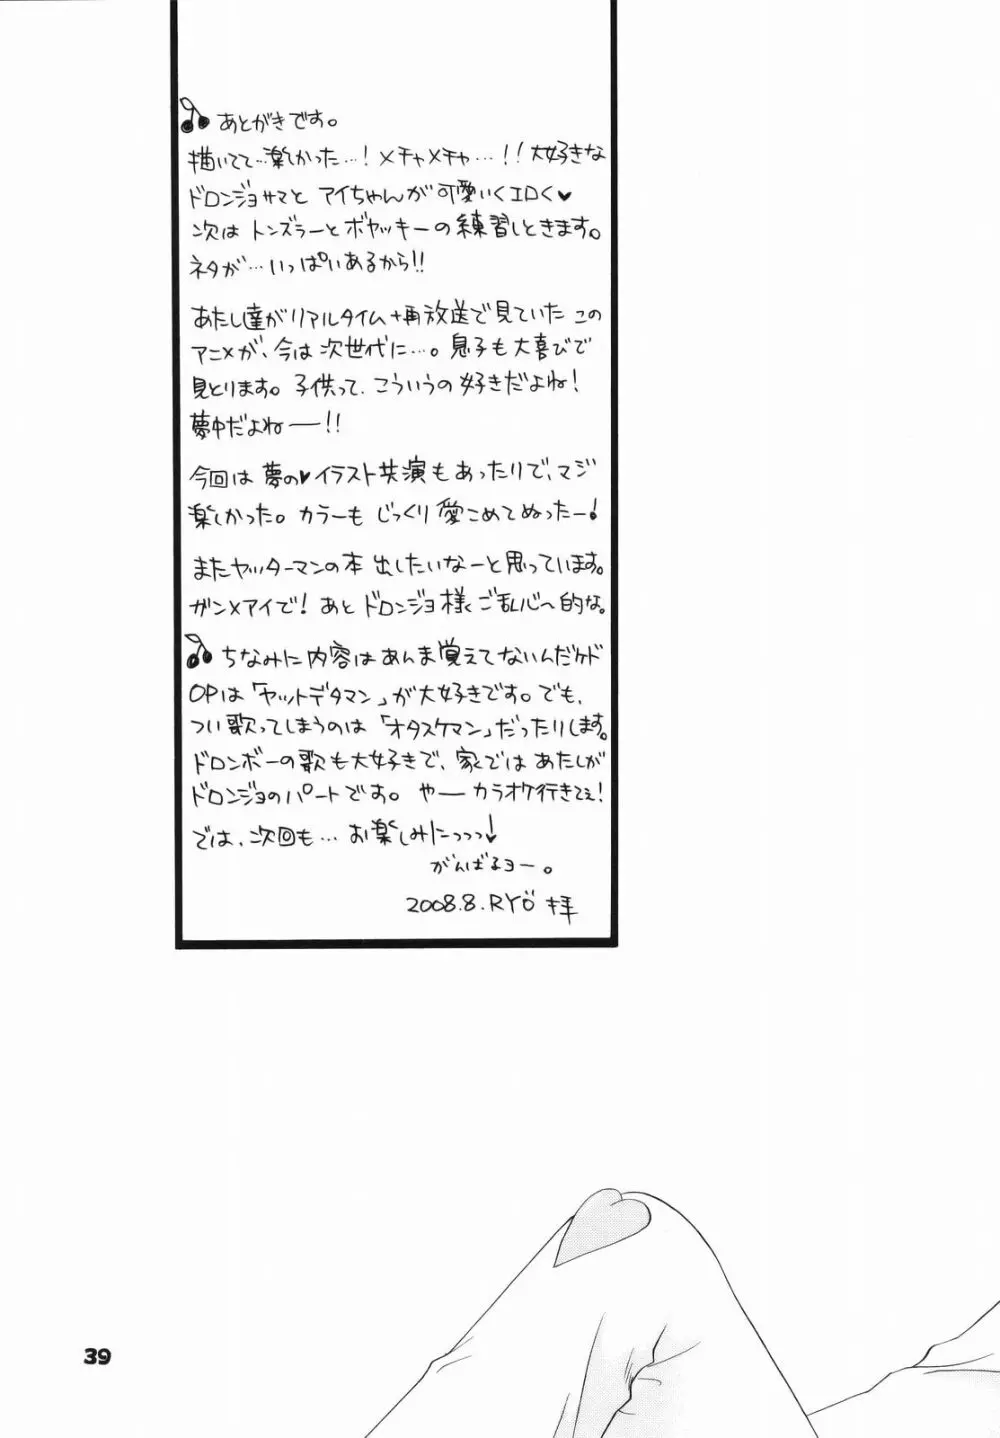 あとがきです。
描いてて…楽しかった…！メチャメチャ…！！大好きな
ドロンジョサマと アイちゃんが可愛いくエロく♥
次は トンズラーとボヤッキーの練習しときます。
ネタが…いっぱいあるから!!
あたし達がリアルタイム+再放送で見ていた この
アニメが、今は次世代に…。息子も大喜びで
見とります。子供って、こういうの好きだよね！
夢中だよねー!!
今回は 夢の♥イラスト共演もあったりで、マジ
楽しかった。カラーも じっくり愛こめてぬったー！
またヤッターマンの本 出したいなーと思っています。
ガン×アイで！あと ドロンジョ様ご乱心〜的な。
ちなみに内容はあんま覚えてないんだケド
OPは「ヤットデタマン」が大好きです。でも、
つい歌ってしまうのは「オタスケマン」だったりします。
ドロンボーの歌も大好きで、家ではあたしが
ドロンジョのパートです。 やーカラオケ行きてぇ！
では、次回も…お楽しみにっっっ↓
がんばるヨー。
2008.8.RYÖ 拝
39